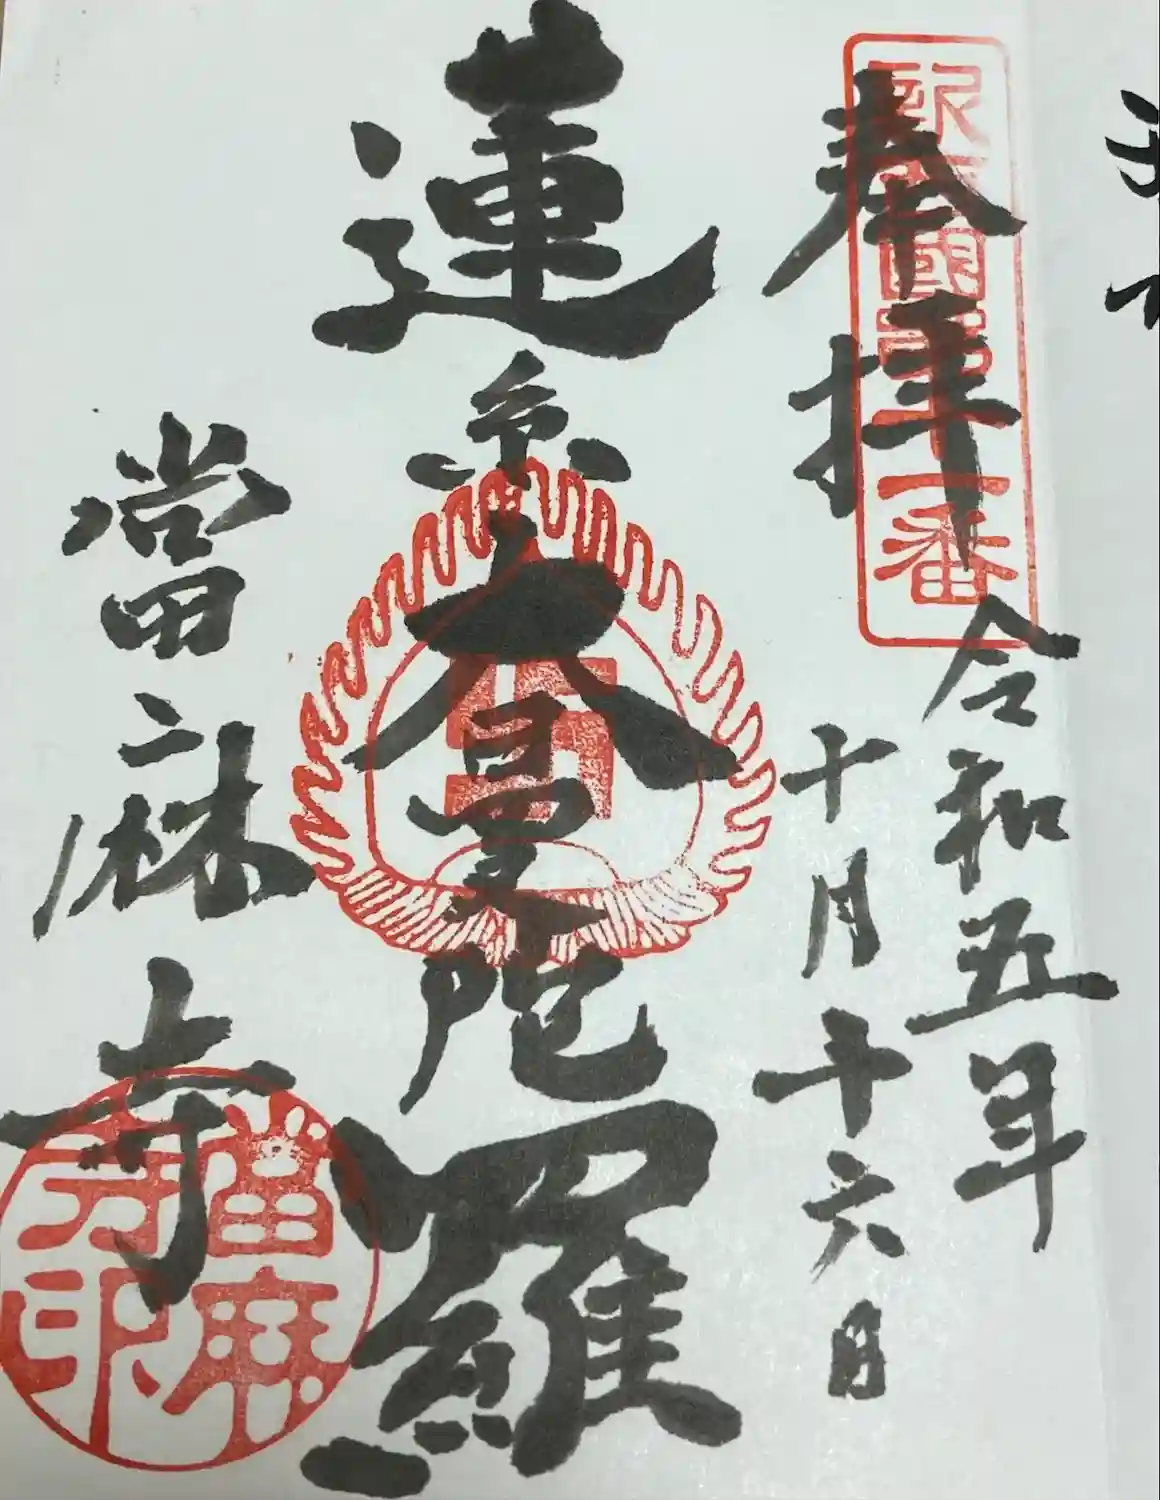 奉拝
新西國第十一番
令和五年
十月十六日
蓮糸大曼陀羅
當麻寺
當麻
寺印